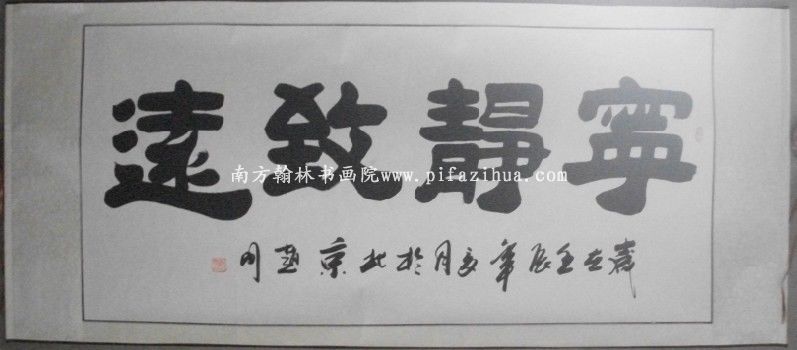 寧靜致遠
南方翰林书画院www.pifazihua.com
歲在壬辰年夏月於北京